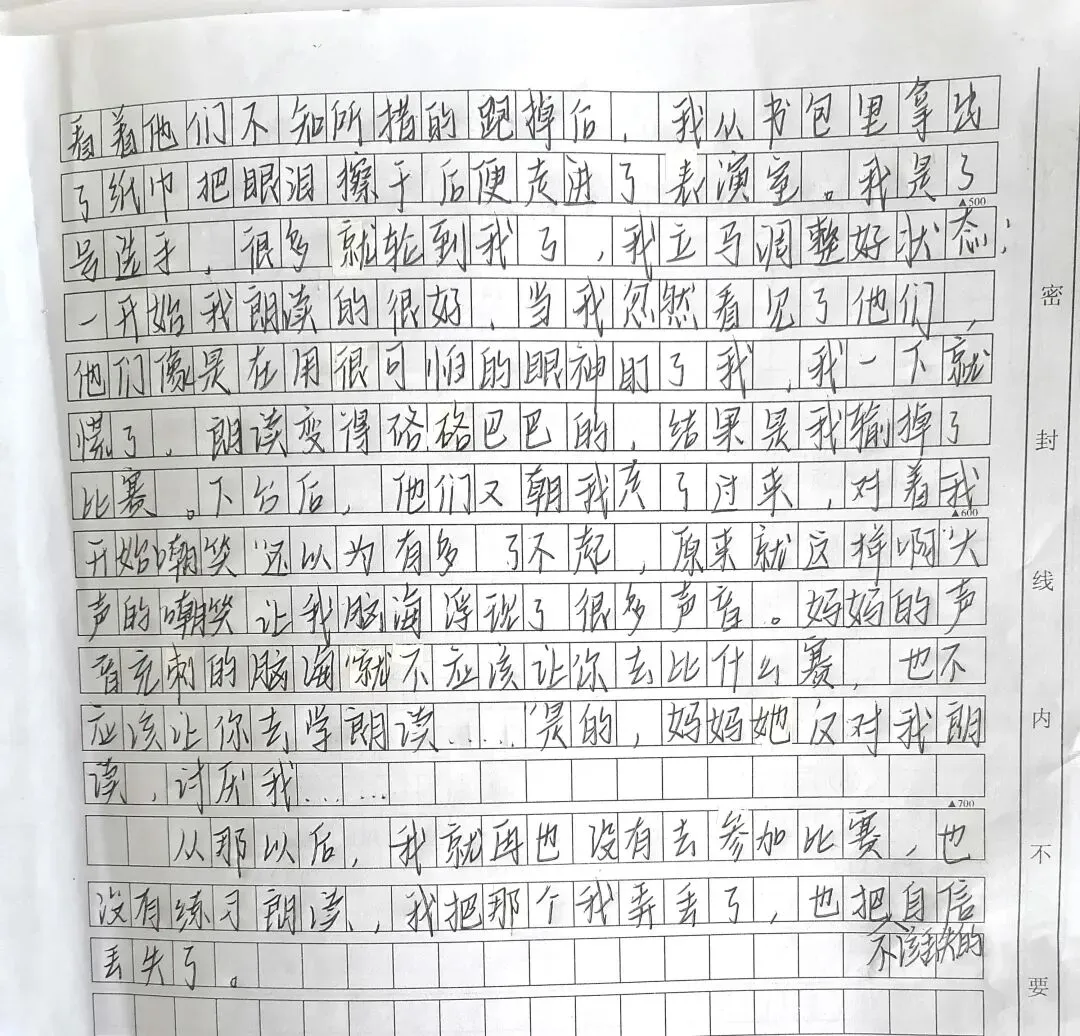 看着他们不知所措的跑掉后，我从书包里拿出
了纸巾把眼泪擦干后便走进了表演室。我是了
▲500
号选手，很多就轮到我了，我立马调整好状态；
一开始我朗读的很好，当我忽然看见了他们，
他们像是在用很可怕的眼神盯了我，我一下就
慌了，朗读变得硌硌巴巴的，结果是我输掉了
比赛。下台后，他们又朝我走了过来，对着我
▲600
开始嘲笑“还以为有多了不起，原来就这样啊”大
声的嘲笑让我脑海浮现了很多声音。妈妈的声
音充刺的脑海“就不应该让你去比什么赛，也不
应该让你去学朗读……”是的，妈妈她反对我朗
读，讨厌我……
▲700
从那以后，我就再也没有去参加比赛，也
没有练习朗读，我把那个我弄丢了，也把自信
不该丢失的
丢失了。
密
封
线
内
不
要